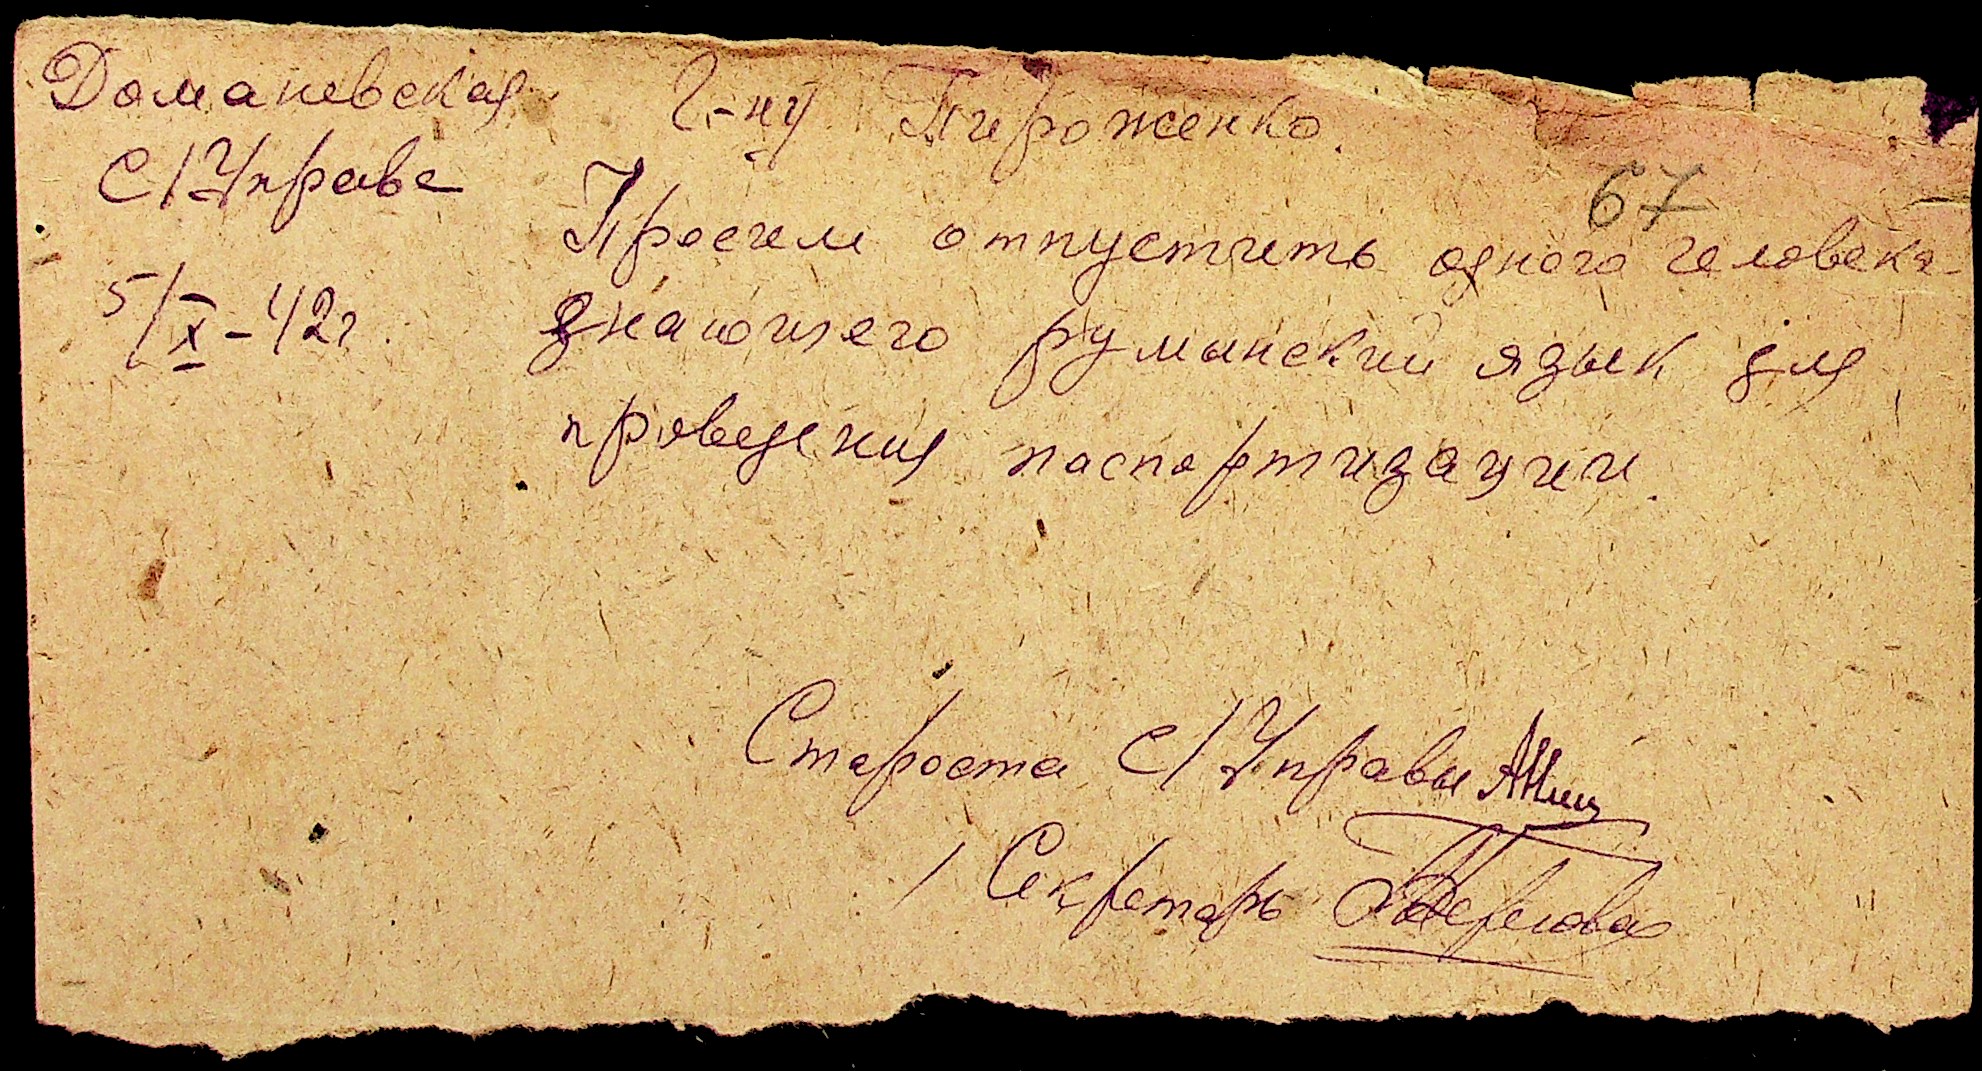 Доманевская
С/Управа
5/X-42г.
Г-ну Пироженко.
67
Просим отпустить одного человека
знающего румынский язык для
проведения паспортизации.
Староста С/Управы
Секретарь